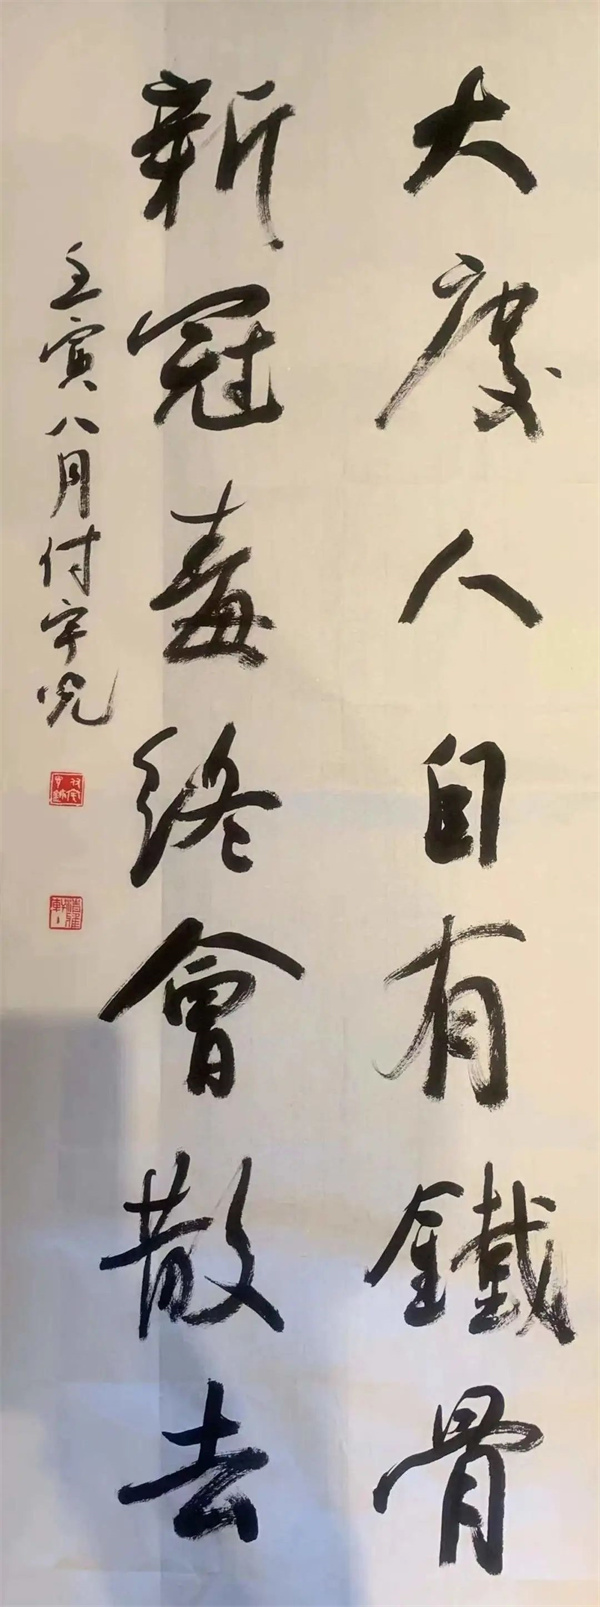 大度人自有鐵骨
新冠毒终會散去
壬寅八月付宇兇